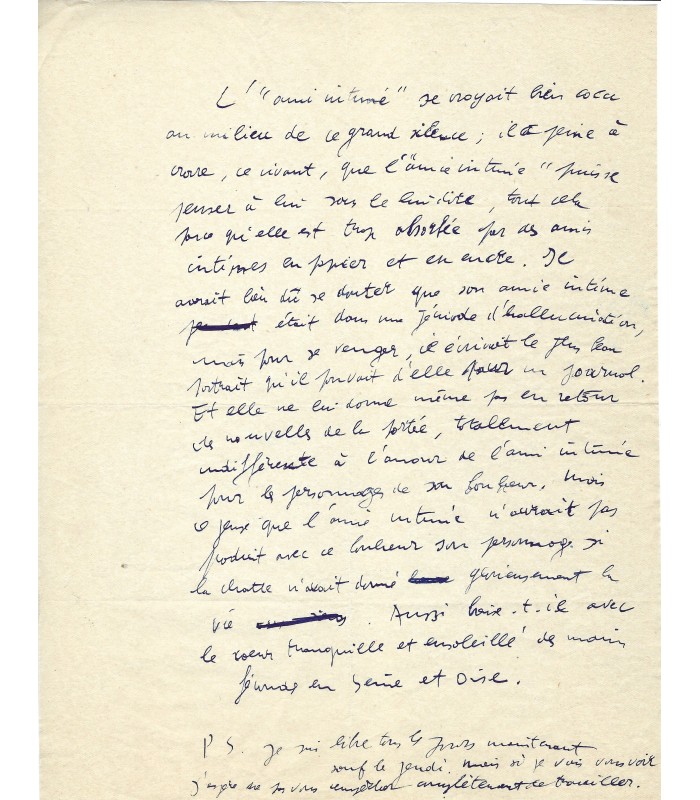 L'"ami intime" se croyait bien cocu
au milieu de ce grand silence ; il a peine à
croire, ce vivant, que l'"amie intime" puisse
penser à lui sous le , tout cela
parce qu'elle est trop absorbée par des amis
intimes en papier et en encre. Il
aurait bien dû se douter que son amie intime
était dans une période d'hallucination,
mais pour se venger, il écrivait le plus beau
portrait qu'il pouvait d'elle pour un journal.
Et elle ne lui donne même pas en retour
de nouvelles de la portée, totalement
indifférente à l'amour de l'ami intime
pour les personnages de son bonheur. Mais
je pense que l'amie intime n'aurait pas
produit avec ce bonheur son personnage si
la chatte n'avait donné glorieusement la
vie . Aussi baise-t-il avec
le coeur tranquille et ensoleillé des mains
fécondes en Seine et Oise.
P S. Je suis libre tous les jours maintenant
sauf le jeudi. mais si je vais vous voir
j'espère ne pas vous empêcher complètement de travailler.